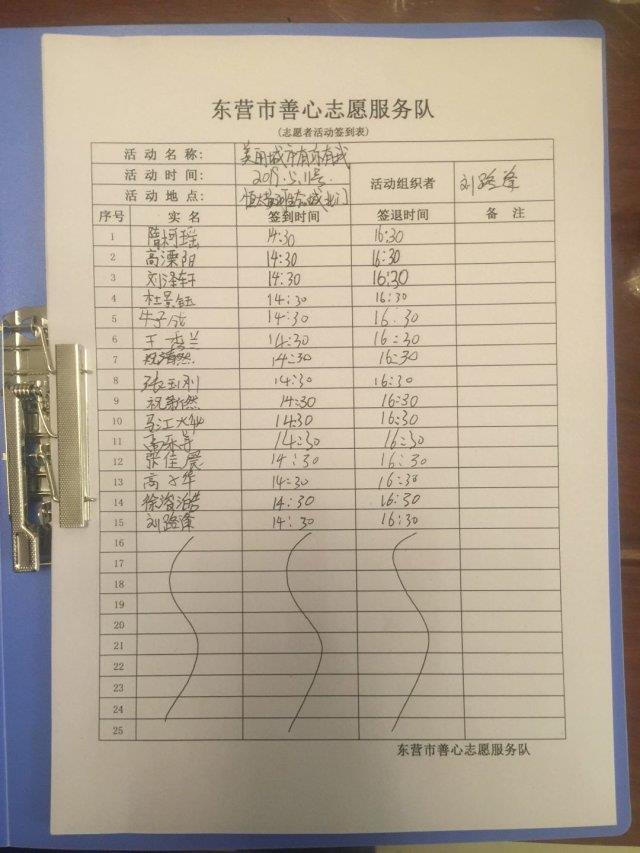 东营市善心志愿服务队
(志愿者活动签到表)
活动名称: 美丽城市有你有我
活动时间: 2019.5.11号
活动组织者 刘路泽
活动地点: 北门
序号 实名 签到时间 签退时间 备注
1 隋柯瑶 14:30 16:30
2 高溧阳 14:30 16:30
3 刘泽轩 14:30 16:30
4 杜景钰 14:30 16:30
5 牛子 14:30 16:30
6 王秀兰 14:30 16:30
7 祝清然 14:30 16:30
8 张玉刚 14:30 16:30
9 祝新然 14:30 16:30
10 马江 14:30 16:30
11 14:30 16:30
12 张佳晨 14:30 16:30
13 高 华 14:30 16:30
14 徐浚泊 14:30 16:30
15 刘路泽 14:30 16:30
16
17
18
19
20
21
22
23
24
25
东营市善心志愿服务队